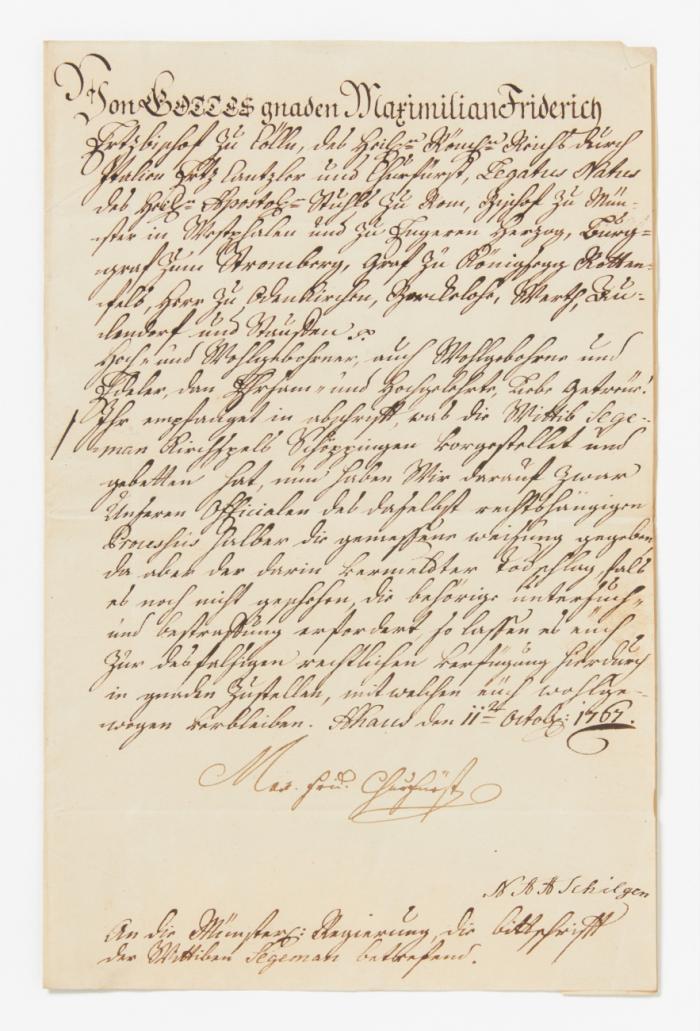 Von GOTTES gnaden Maximilian Friderich
Ertzbischof zu Cölln, des Heil: Röm: Reichs durch
Italien Ertz Cantzler und Churfürst, Legatus Natus
des Heil: Apostol: Stuhls zu Rom, Bischof zu Mün-
ster in Westphalen und zu Engeren Hertzog, Burg-
graf zum Stromberg, Graf zu Königsegg Rotten-
fels, Herr zu Odenkirchen, Borckelohe, Werth, Au-
lendorf und Stauffen
Hoch- und Wohlgebohrner, auch Wohlgebohrne und
Edeler, dan Ehrsam- und Hochgelehrte, Liebe Getreue!
Ihr empfanget in abschrifft, was die Wittib Sege-
man Kirchspels Schöppingen vorgestellet und
gebetten hat, nun haben Wir darauf zwar
Unseren Officialen des daselbst rechtshängigen
Processus halber die gemessene weisung gegeben
da aber der darin vermeldter Todschlag, fals
es noch nicht geschehen, die behörige untersuch-
und bestraffung erfordert, so lassen es euch
zur desfalsigen rechtlichen verfügung hierdurch
in gnaden zustellen, mit welchen euch wohlge-
wogen verbleiben. den 11t Octob: 1767.
Max. Frid. Churfürst
N A A Schilgen
An die Münster: Regierung, die bittschrifft
der Wittiben Segeman betrefend.